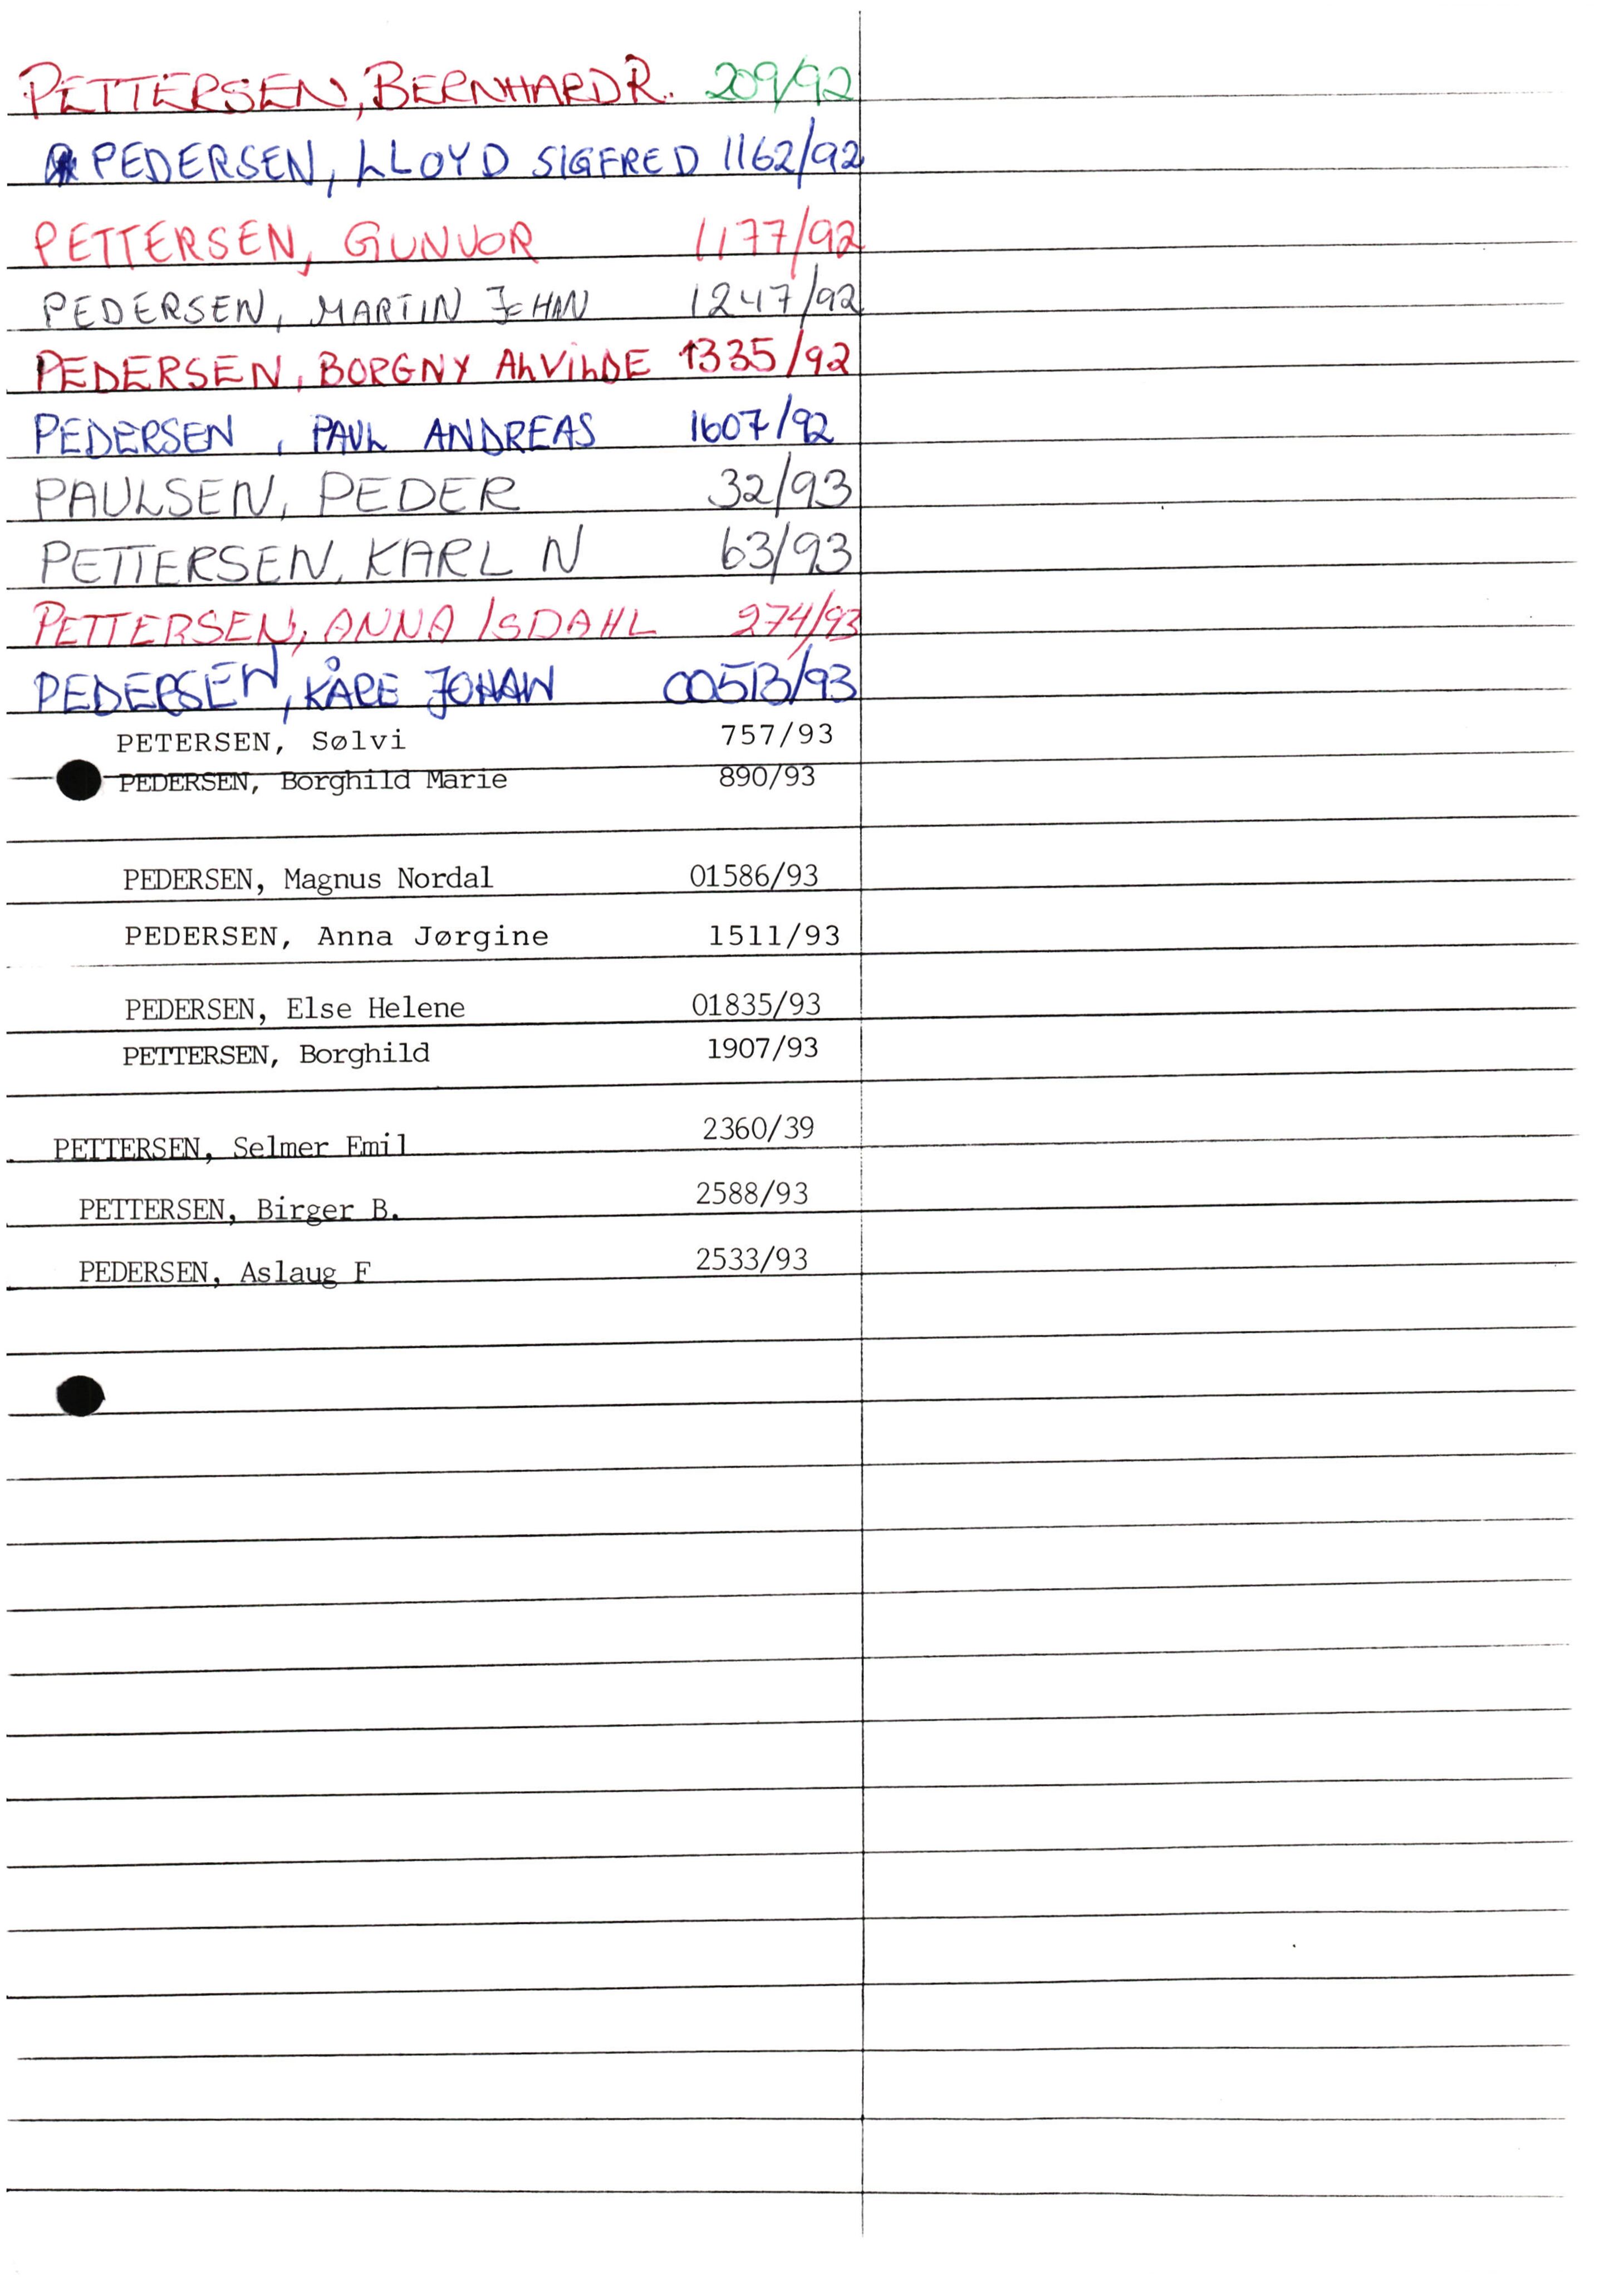 PETTERSEN, BERNHARD R. 209/92
PEDERSEN, LLOYD SIGFRED 1162/92
PETTERSEN, GUNVOR 1177/92
PEDERSEN, MARTIN JOHAN 1247/92
PEDERSEN, BORGNY ALVILDE 1335/92
PEDERSEN, PAUL ANDREAS 1607/92
PAULSEN, PEDER 32/93
PETTERSEN, KARL N 63/93
PETTERSEN, ANNA ISDAHL 274/93
PEDERSEN, KÅRE JOHAN 00513/93
PETERSEN, Sølvi 757/93
PEDERSEN, Borghild Marie 890/93
PEDERSEN, Magnus Nordal 01586/93
PEDERSEN, Anna Jørgine 1511/93
PEDERSEN, Else Helene 01835/93
PETTERSEN, Borghild 1907/93
PETTERSEN, Selmer Emil 2360/39
PETTERSEN, Birger B. 2588/93
PEDERSEN, Aslaug F 2533/93